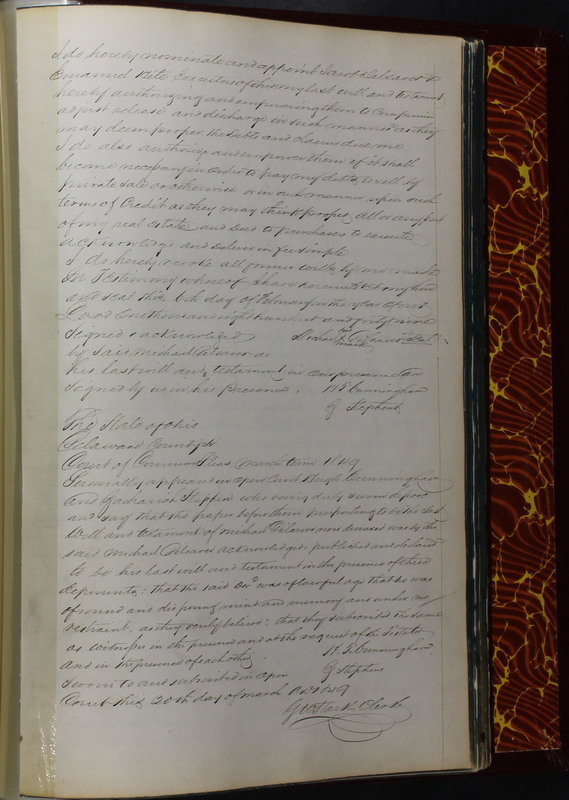 I do hereby nominate and appoint
Emanuel Hite Executors of this my last will and testament
hereby authorizing and empowering them to compromise
adjust release and discharge in such manner as they
may deem proper the debts and claims due me
I do also authorize and empower them if it shall
become necessary in order to pay my debts to sell by
private sale or otherwise or in such manner upon such
terms of Credit as they may think proper all or any part
of my real estate and deeds to purchasers to execute
acknowledge and deliver in fee simple
I do hereby revoke all former wills by me made
In Testimony whereof I have hereunto set my hand
and seal this 6th day of February in the year of our
Lord One thousand eight hundred and forty nine
Signed & acknowledged
by said Michael as
his last will and testament in our presence and
signed by us in his presence. Cunningham
The State of Ohio
Delaware County ss
Court of Common Pleas March term 1849
Personally appeared in open Court Hugh Cunningham
and Zachariah who being duly sworn depose
and say that the paper before them purporting to be the last
Will and testament of Michael now deceased was by the
said Michael acknowledged, published and declared
to be his last will and testament in the presence of these
deponents; that the said Decd was of lawful age that he was
of sound and disposing mind and memory and under no
restraint, as they verily believe; that they subscribed the same
as witness in the presence and at the request of the testator
and in the presence of each other. Cunningham
Sworn to and subscribed in open
Court this 20th day of March AD 1849
Clerk